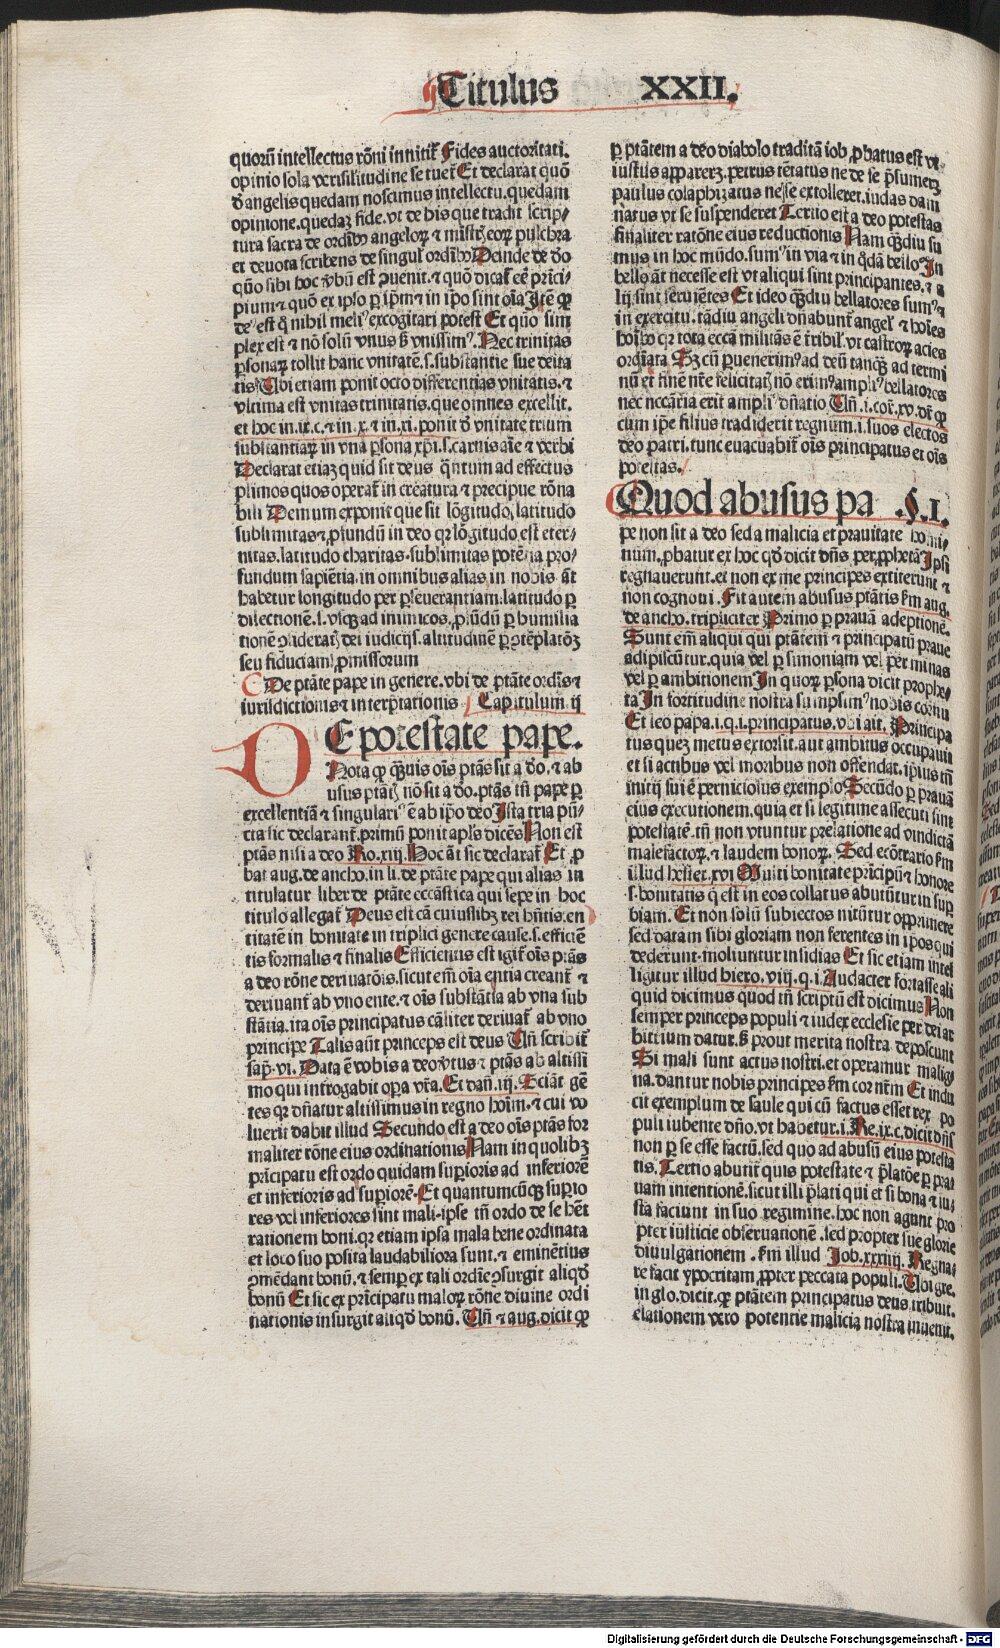 Titulus XXII.
quorū intellectus rōni innitit᷑ Fides auctoritati.
opinio sola verisilitudine se tuet᷑ Et declarat quō
d̄ angelis quedam noscimus intellectu. quedam
opinione. quedaꝫ fide. vt de his que tradit scrip⸗
tura sacra de ordīb᷒ angeloꝝ ⁊ mīstr̄ eoꝝ pulchra
et deuota scribens de singul᷑ ordīb᷒ Deinde de d̄o
quō sibi hoc v̄bū est ꝯuenit. ⁊ quō dicat᷑ eē prīci⸗
pium ⁊ quō ex ipso ꝑ ipm̄ ⁊ in ipo sint oīa Itē ꝙ
de᷒ est q̄ nihil meli᷒ excogitari potest Et quō sim
plex est ⁊ nō solū vnus sꝫ vnissim᷒. Nec trinitas
ꝑsonaꝝ tollit hanc vnitatē .s. substantie sue deita
tis Ubi etiam ponit octo differentias vnitatis. ⁊
vltima est vnitas trinitatis. que omnes excellit.
et hoc in .ix. c. ⁊ in .x. ⁊ in .xi. ponit d̄ vnitate trium
substantiaꝝ in vna ꝑsona xp̄i .s. carnis aīe ⁊ verbi
Declarat etiaꝫ quid sit deus q̄ntum ad effectus
plimos quos operat᷑ in creatura ⁊ precipue rōna
bili Demum exponit que sit lōgitudo, latitudo
sublimitas ⁊ ꝓfundū in deo qꝛ lōgitudo est eter⸗
nitas. latitudo charitas. sublimitas potētia pro⸗
fundum sapiētia. in omnibus alias in nobis āt
habetur longitudo per ꝑseuerantiam. latitudo ꝑ
dilectionē .s. vsqꝫ ad inimicos. ꝓfūdū ꝑ humilia
tionē ꝯsiderat᷑ dei iudicijs. altitudinē ꝑ ꝯtēplatōꝫ
seu fiduciam ꝓmissorum
De ptāte pape in genere. vbi de ptāte ordīs ⁊
iurisdictionis ⁊ interp̄tationis Capitulum ij
DE potestate pape.
Nota ꝙ q̄uis oīs ptās sit a d̄o. ⁊ ab
usus ptātꝭ nō sit a d̄o. ptās tn̄ pape ꝑ
excellentiā ⁊ singulari᷒ ē ab ip̄o deo Ista tria pū⸗
cta sic declarant᷑. primū ponit apls dicēs Non est
ptās nisi a deo Ro. xiij. Hoc āt sic declarat᷑ Et ꝓ
bat aug. de ancho. in li. de ptāte pape qui alias in
titulatur liber de ptāte eccāstica qui sepe in hoc
titulo allegat᷑ Deus est cā cuiuslibꝫ rei hn̄tis. en
titatē in bonitate in triplici genere cause .s. efficiē
tis formalis ⁊ finalis Efficientis est igit᷑ oīs ptās
a deo rōne deriuatōis. sicut em̄ oīa entia creant᷑ ⁊
deriuant᷑ ab vno ente. ⁊ oīs substātia ab vna sub
stātia. ita oīs principatus cāliter deriuat᷑ ab vno
principe Talis aūt princeps est deus Un̄ scribit᷑
sap̄. vi. Data ē vobis a deo v̄tus ⁊ ptās ab altissi
mo qui introgabit opa vr̄a. Et dan̄. iij. Sciāt gē
tes qꝛ dn̄atur altissimus in regno hoīm. ⁊ cui vo
luerit dabit illud Secundo est a deo oīs ptās for
maliter rōne eius ordinationis Nam in quolibꝫ
prīcipatu est ordo quidam suꝑioris ad inferiorē
et inferioris ad suꝑiorē. Et quantumcūqꝫ suꝑio
res vel inferiores sint mali. ipse tn̄ ordo de se hꝫet
rationem boni. qꝛ etiam ipsa mala bene ordinata
et loco suo posita laudabiliora sunt. ⁊ eminētius
ꝯmēdant bonū. ⁊ semꝑ ex tali ordīe ꝯsurgit aliqd̄
bonū Et sic ex prīcipatu maloꝝ rōne diuine ordi
nationis insurgit aliqd̄ bonū. Un̄ ⁊ aug. dicit ꝙ
ꝑ ptātem a deo diabolo traditā iob ꝓbatus est vt
iustus appareꝛꝫ. petrus tētatus ne de se p̄sumeꝛꝫ
paulus colaphizatus ne se extolleret. iudas dam
natus vt se suspenderet Tertio est a deo potestas
finaliter ratōne eius reductionis Nam q̄diu su
mus in hoc mūdo. sum᷒ in via ⁊ in q̄dā bello In
bello āt necesse est vt aliqui sint principantes. ⁊ a
lij sint seruiētes Et ideo q̄diu bellatores sum᷒ ⁊
in exercitu. tādiu angeli dn̄abunt᷑ angel᷑ ⁊ hoīes
hoīb᷒ qꝛ tota eccā militās ē t̄ribil᷑ vt castroꝝ acies
ordīata Sꝫ cū ꝑuenerim᷒ ad deū tanqꝫ ad termi
nū et finē nr̄e felicitatꝭ nō erim᷒ ampli᷒ bellatores
nec nccāria erit ampli᷒ dn̄atio Un̄ .i. cor. xv. dr̄ ꝙ
cum ipe filius tradiderit regnum .i. suos electos
deo patri. tunc euacuabit᷑ oīs principatus et oīs
potestas.
Quod abusus pa .§.I.
pe non sit a deo sed a malicia et prauitate homi⸗
num. ꝓbatur ex hoc qd̄ dicit dn̄s per ꝓphetā Ipsi
regnauerunt. et non ex me principes extiterunt ⁊
non cognoui. Fit autem abusus ptātis s̄m aug.
de ancho. tripliciter Primo ꝑ prauā adeptionē.
Sunt em̄ aliqui qui ptātem ⁊ principatū praue
adipiscūtur. quia vel ꝑ simoniam vel per minas
vel ꝑ ambitionem In quoꝝ ꝑsona dicit prophe⸗
ta In fortitudine nostra sumpsim᷒ nobis cornu
Et leo papa .i. q. i. principatus. vbi ait. Principa
tus quez metus extorsit. aut ambitus occupauit
et si actibus vel moribus non offendat. ip̄ius tn̄
initij sui ē perniciosus exemplo Secūdo ꝑ prauā
eius executionem. quia et si legitime assecuti sint
potestatē. tn̄ non vtuntur prelatione ad vindictā
malefactoꝝ. ⁊ laudem bonoꝝ. Sed ecōtrario s̄m
illud hester. xvi Multi bonitate prīcipū ⁊ honore
.s. bonitatis q̄ est in eos collatus abutūtur in suꝑ
biam. Et non solū subiectos nitūtur opprimere
sed datam sibi gloriam non ferentes in ip̄os qui
dederunt. moliuntur insidias Et sic etiam intel
ligitur illud hiero. viij. q. i. Audacter fortasse ali
quid dicimus quod tn̄ scriptū est dicimus Non
semper princeps populi ⁊ iudex ecclesie per dei ar
bitrium datur. sꝫ prout merita nostra deposcunt
Si mali sunt actus nostri. et operamur malig
na. dantur nobis principes s̄m cor nr̄m Et indu
cit exemplum de saule qui cū factus esset rex po
puli iubente dn̄o. vt habetur .i. Re. ix. c. dicit dn̄s
non ꝑ se esse factū. sed quo ad abusū eius potesta
tis. Tertio abutit᷑ quis potestate ⁊ p̄latōe ꝑ pra⸗
uam intentionē. sicut illi p̄lati qui et si bona ⁊ iu⸗
sta faciunt in suo regimine. hoc non agunt pro
pter iusticie obseruationē. sed propter sue glorie
diuulgationem. s̄m illud Job. xxxiiij. Regna⸗
re facit ypocritam ꝓpter peccata populi. Ubi gre.
in glo. dicit. ꝙ ptātem principatus deus tribuit.
elationem vero potentie malicia nostra inuenit.
Digitalisierung gefördert durch die Deutsche Forschungsgemeinschaft - DFG